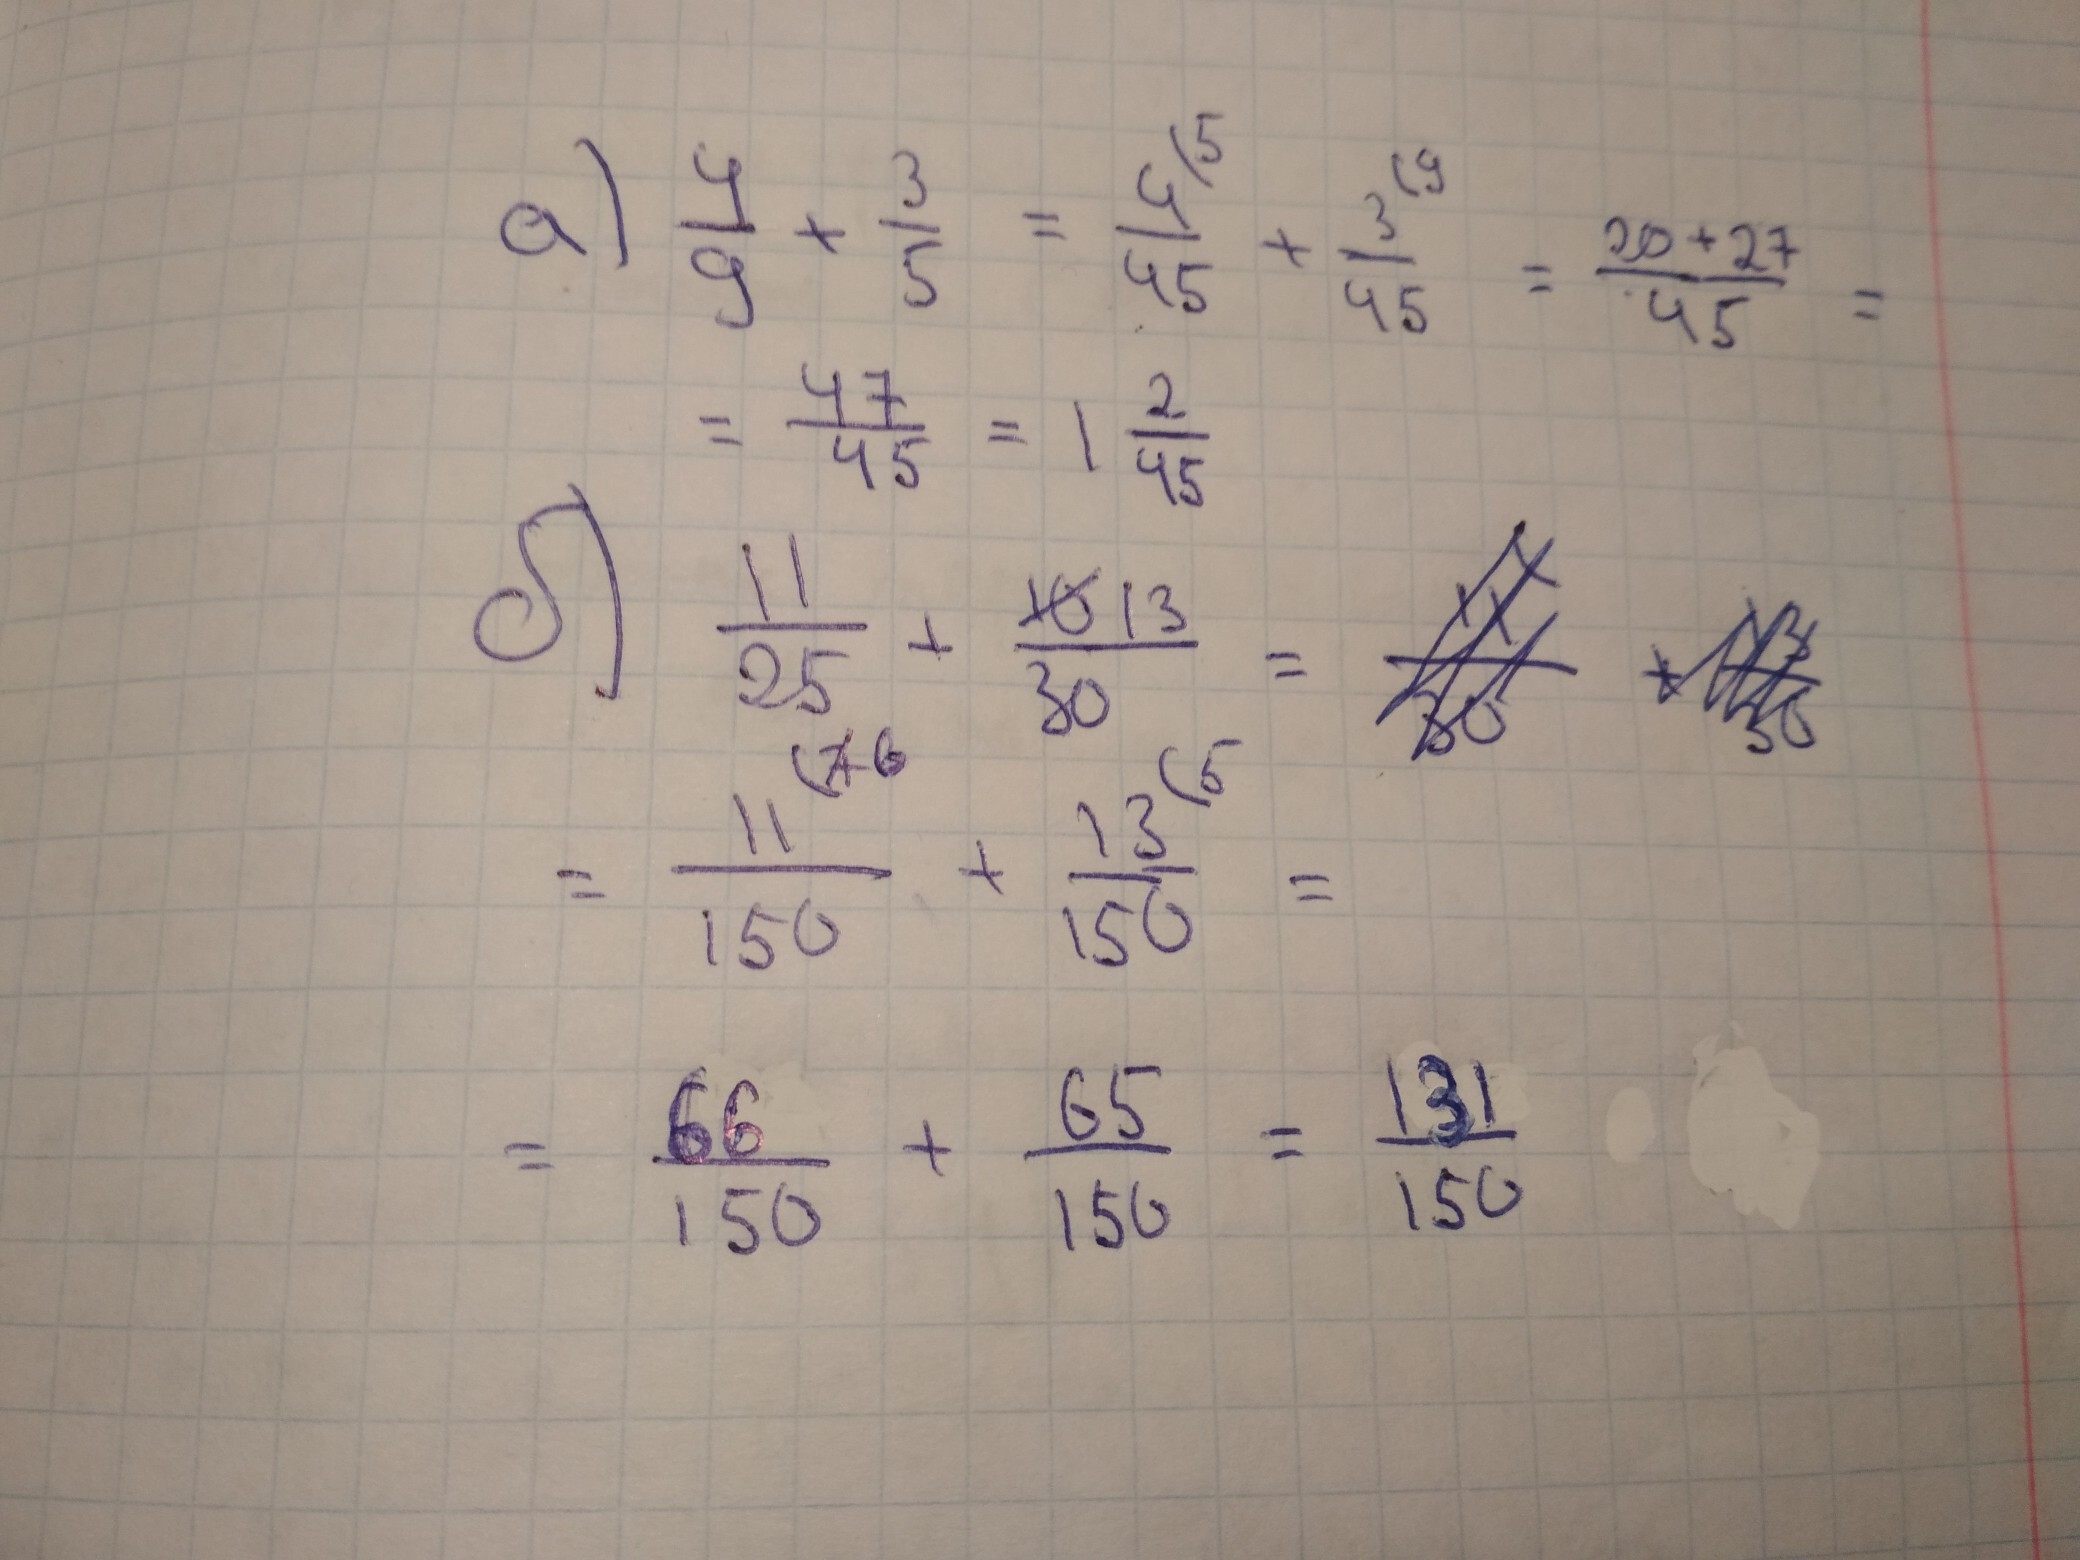 а) 4/9 + 3/5 = 4(5/45 + 3(9/45 = 20+27/45 =
= 47/45 = 1 2/45
б) 11/25 + 13/30 =
= 11(6/150 + 13(5/150 =
= 66/150 + 65/150 = 131/150